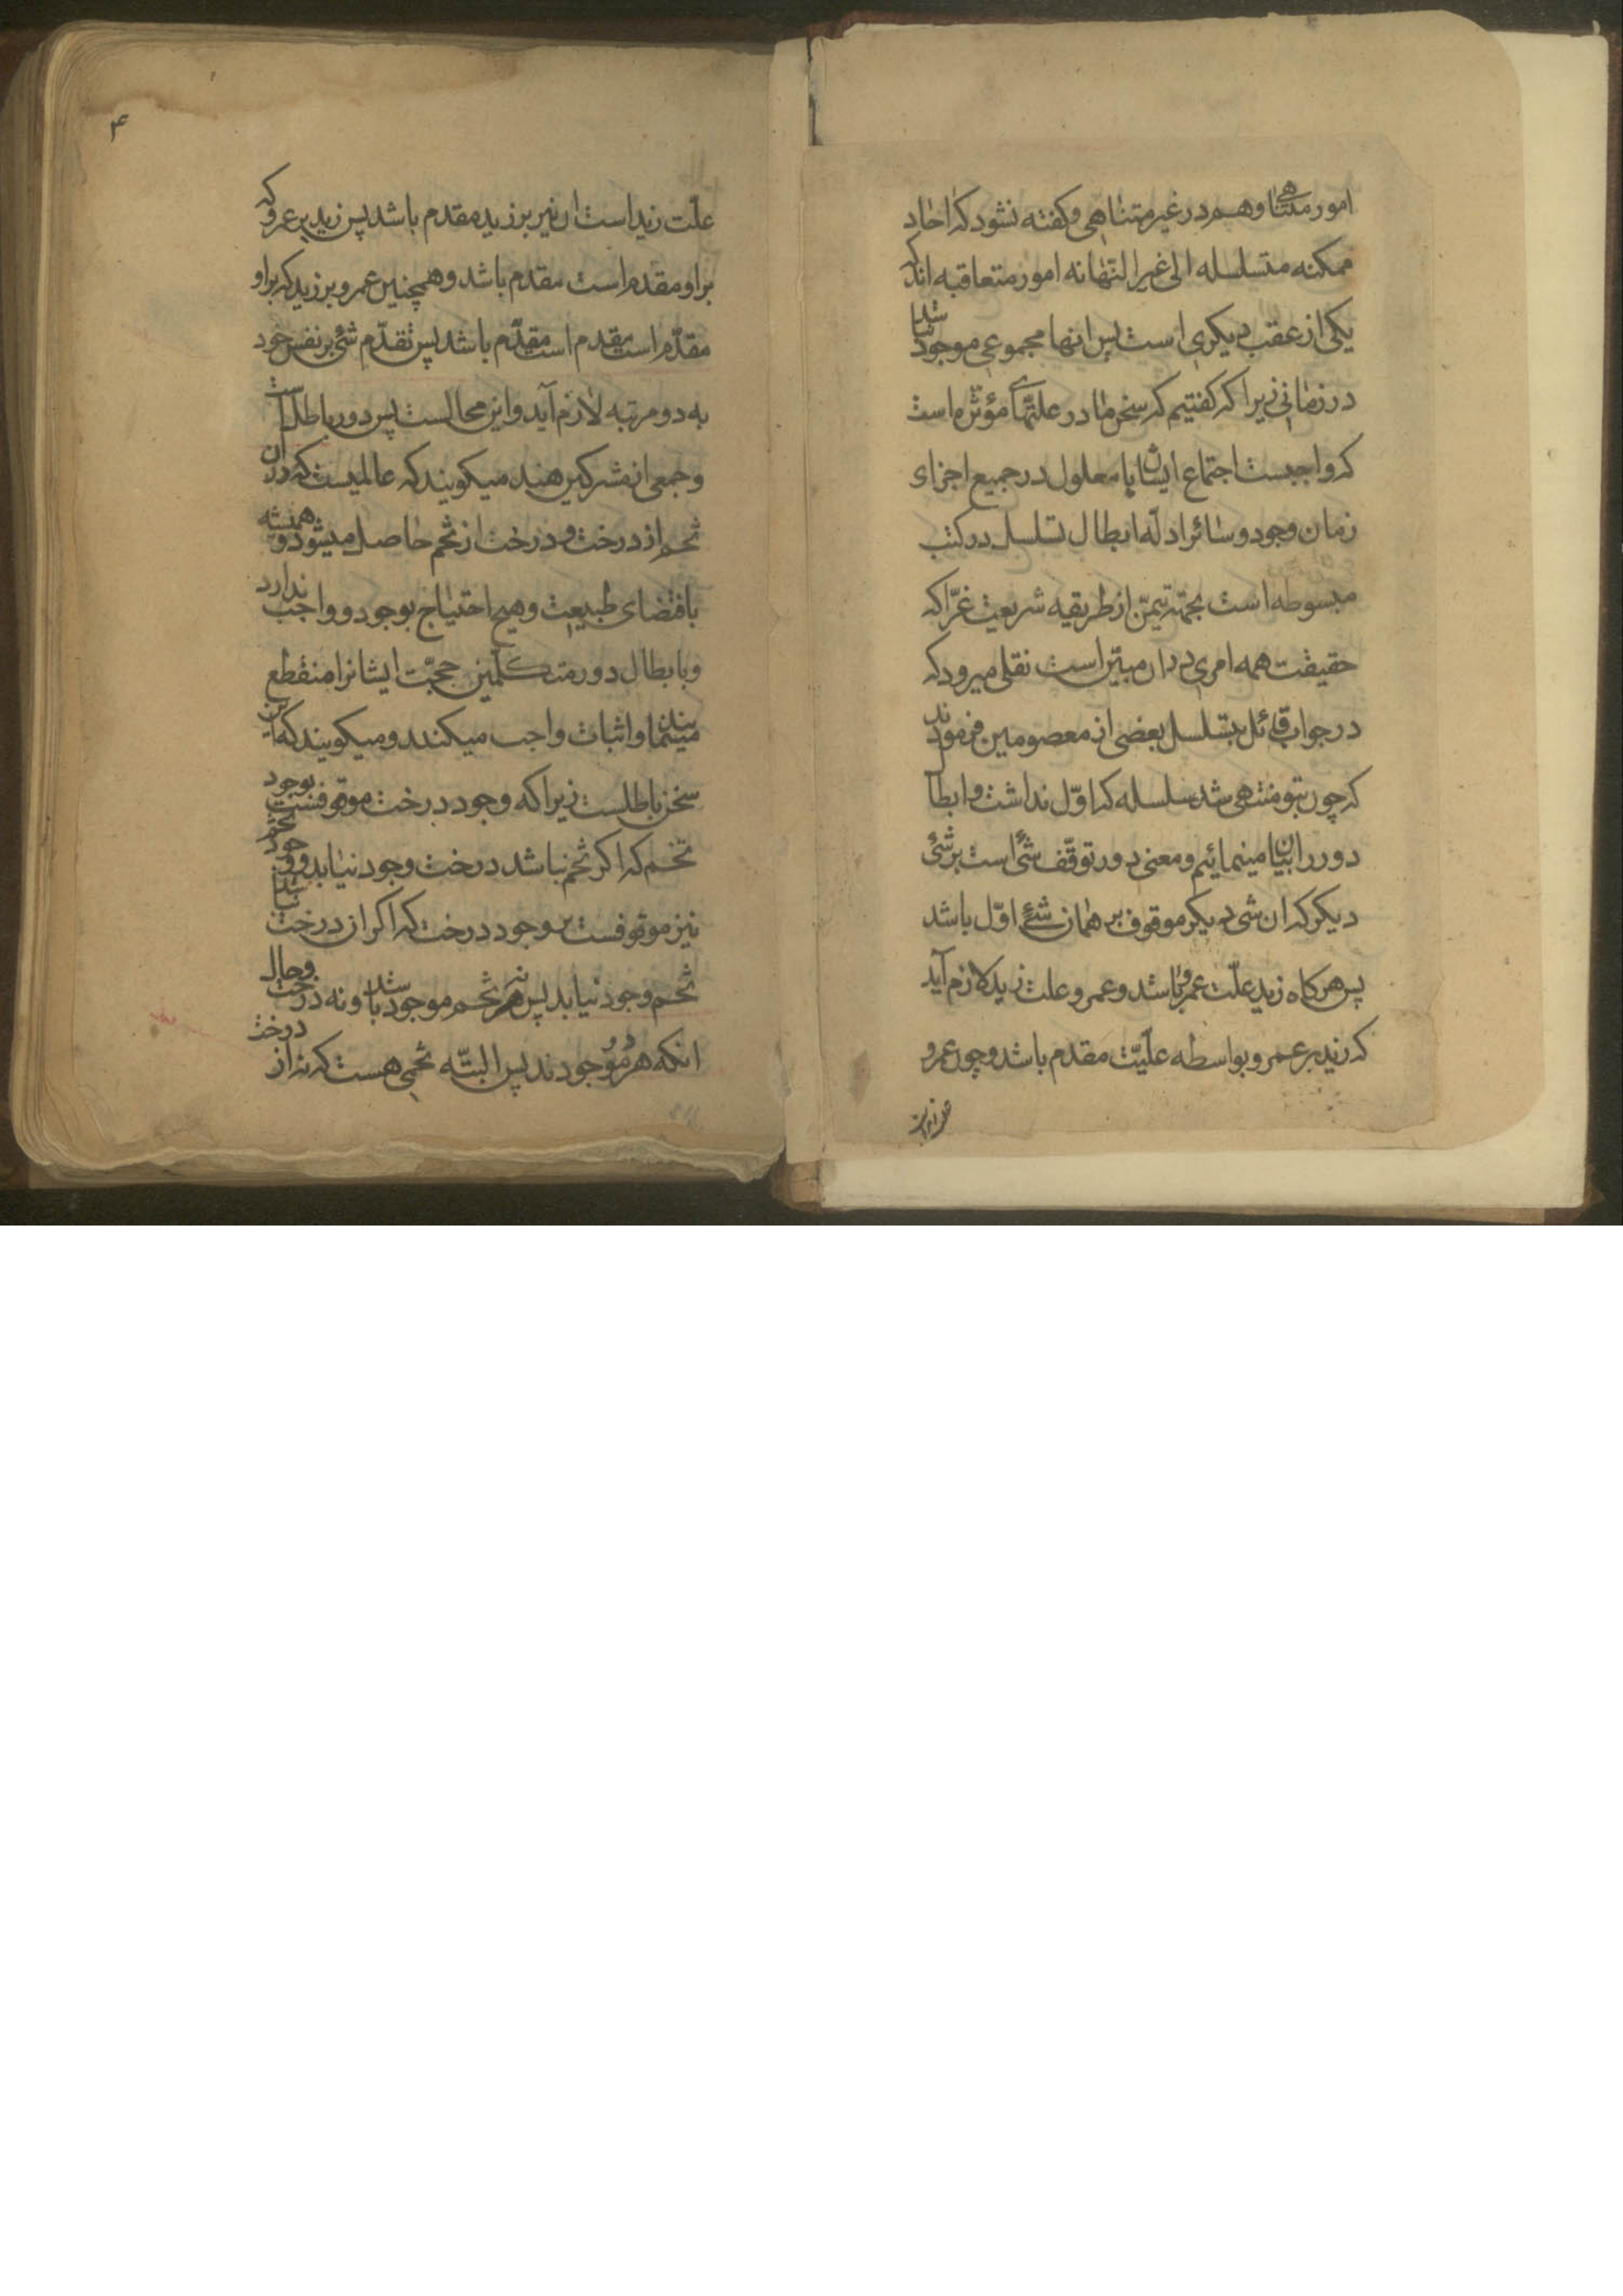 امور متناهی و هم در غیر متناهی و کفته نشود که احاد
ممکنه متسلسله الی غیر النهایه امور متعاقبه اند که
یکی از عقب دیکری است پس انها مجموعی موجود نباشد
در زمانی زیرا که کفتیم که سخن ما در علتهای مؤثره است
که واجبست اجتماع ایشان با معلول در جمیع اجزاء
زمان وجود و سائر ادلّه ابطال تسلسل در کتب
مبسوطه است بجهة تیمّن از طریقه شریعت غرّا که
حقیقت همه امری در ان مبیّن است نقلی میرود که
در جواب قائل بتسلسل بعضی از معصومین فرمودند
که چون بتو منتهی شد سلسله که اوّل نداشت و ابطال
دور را بیان مینمائیم و معنی دور توقّف شئ است بر شئ
دیکر که ان شی دیکر موقوف بر همان شئ اوّل باشد
پس هرکاه زید علّت عمرو باشد و عمرو علت زید لازم آید
که زید بر عمرو بواسطه علّیّت مقدم باشد و چون عمرو
۴
علّت زید است ان نیز بر زید مقدم باشد پس زید بر عمرو که
بر او مقدم است مقدم باشد و همچنین عمرو بر زید که بر او
مقدّم است مقدم است مقدّم باشد پس تقدّم شئ بر نفس خود
به دو مرتبه لازم آید و این محالست پس دور باطل است
و جمعی از مشرکین هند میکویند که عالمیست که در ان
تخم از درخت و درخت از تخم حاصل میشود و همیشه
باقتضای طبیعت و هیچ احتیاج بوجود واجب ندارد
و بابطال دور متکلّمین حجّت ایشانرا منقطع
مینمایند و اثبات واجب میکنند و میکویند که این
سخن باطلست زیرا که وجود درخت موقوفست بوجود
تخم که اکر تخم نباشد درخت وجود نیابد و وجود تخم
نیز موقوفست بر وجود درخت که اکر از درخت نباشد
تخم وجود نیابد پس نه تخم موجود باشد و نه درخت و حال
انکه هر دو موجودند پس البتّه تخمی هست که نه از درخت